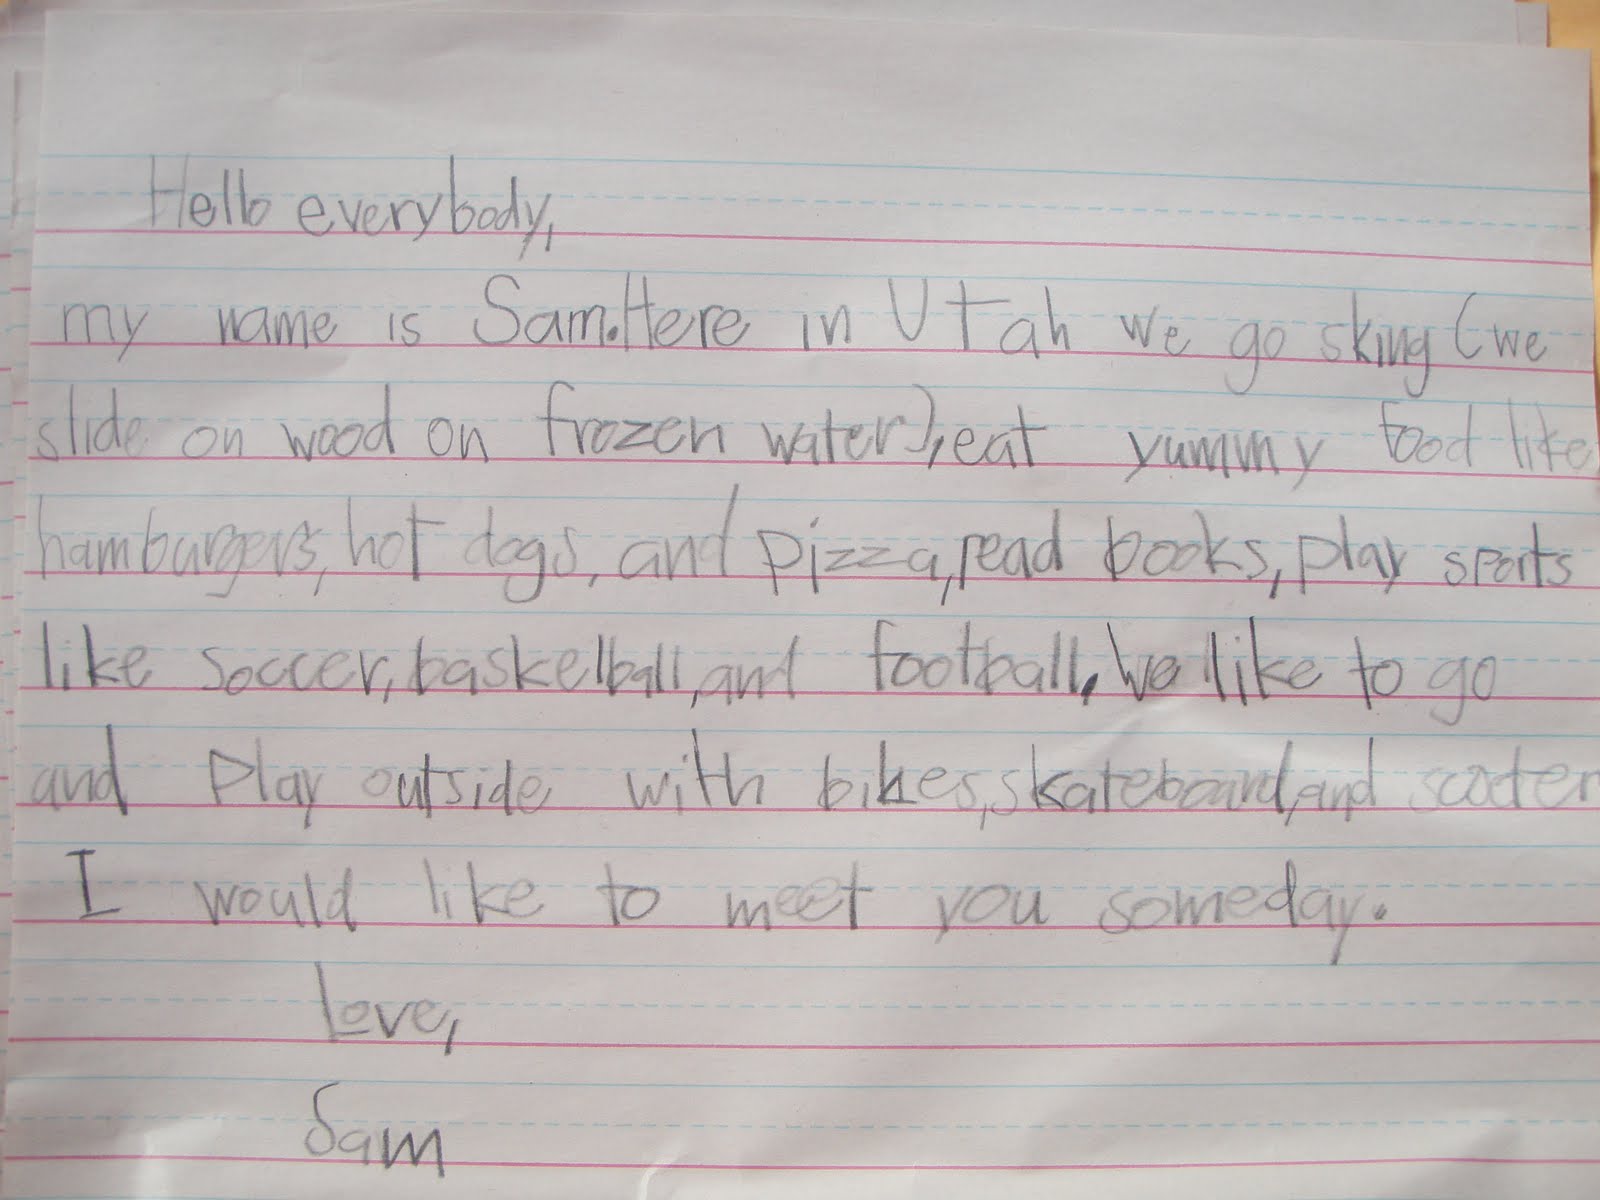 Hello everybody,
my name is Sam. Here in Utah we go sking (we
slide on wood on frozen water), eat yummy food like
hamburgers, hot dogs, and pizza, read books, play sports
like soccer, baskelball, and football. We like to go
and play outside with bikes, skateboard, and scooter
I would like to meet you someday.
Love,
Sam